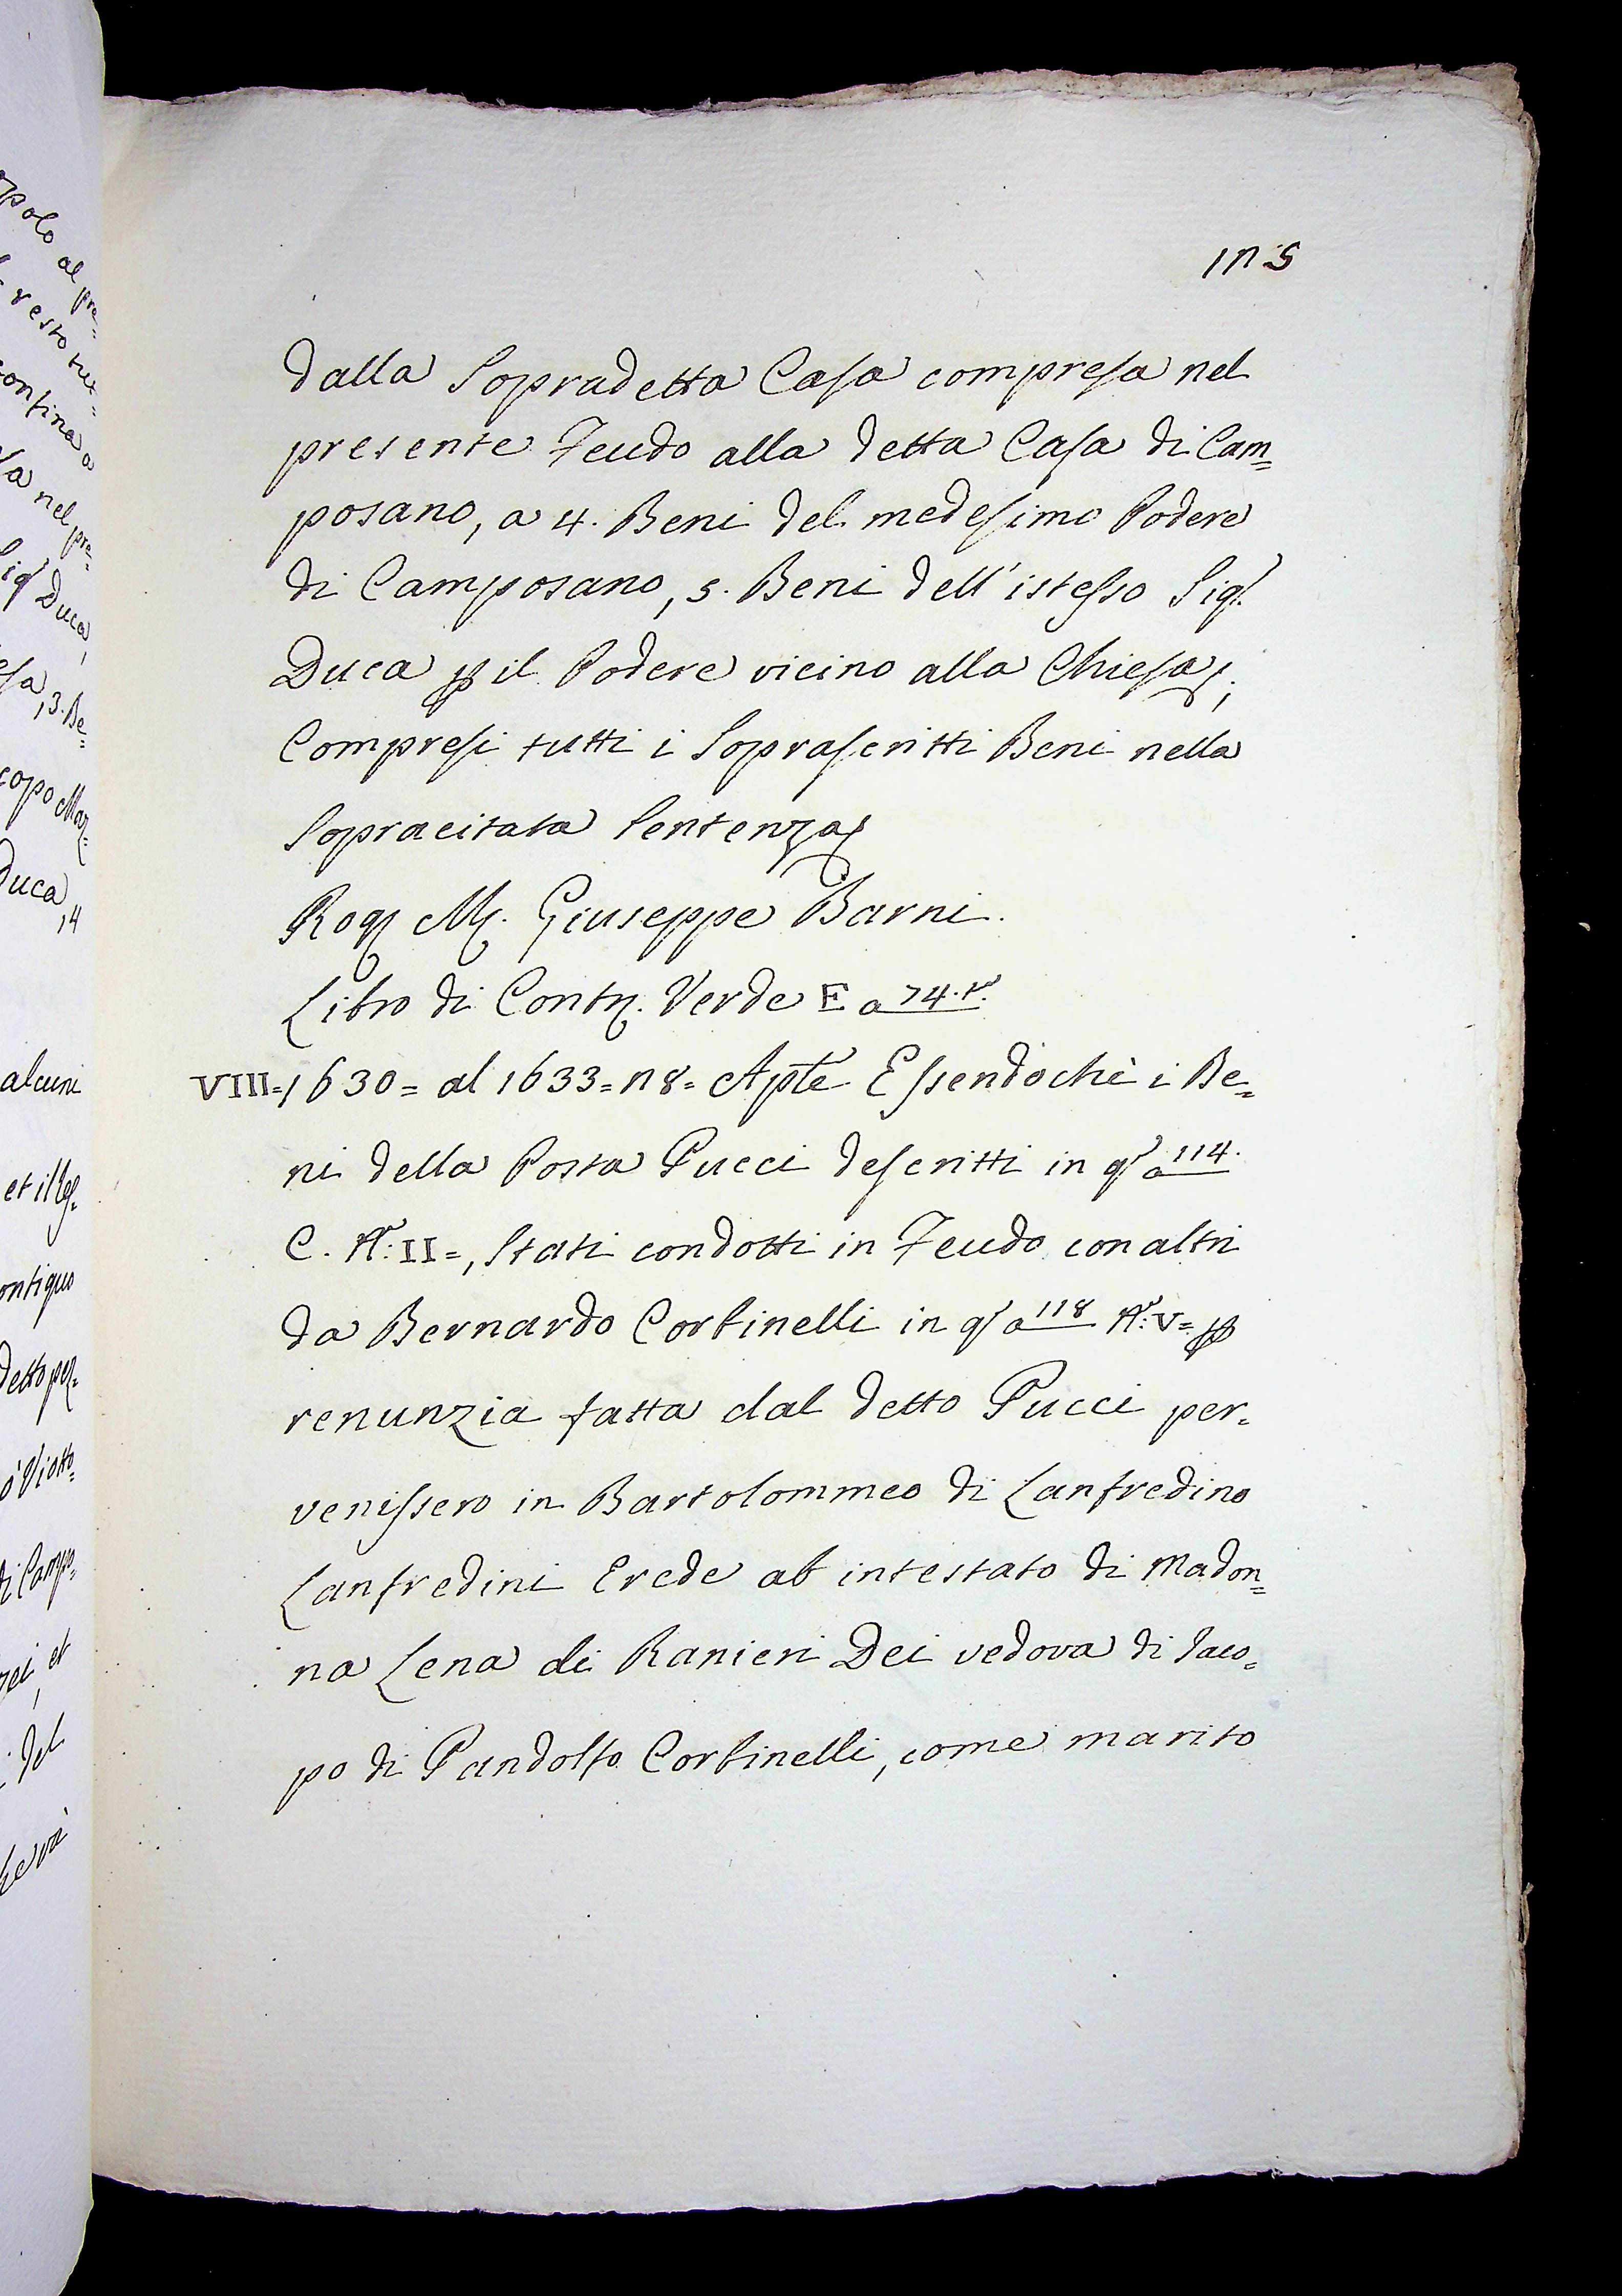 115
dalla Sopradetta Casa compresa nel
presente Feudo alla detta Casa di Cam=
posano, a 4. Beni del medesimo Podere
di Camposano, 5. Beni dell'istesso Sig.r
Duca p il Podere vicino alla Chiesa;
Compresi tutti i Soprascritti Beni nella
Sopracitata Sentenza
Rog. M. Giuseppe Barni.
Libro di Contr. Verde E a 74.t.
VIII=1630= al 1633=n8= Aple Essendochè i Be=
ni della Posta Pucci descritti in q.o a 114.
C. N.: II=, Stati condotti in Feudo con altri
da Bernardo Corbinelli in q.o a 118 N.: V= p
renunzia fatta dal detto Pucci per=
venissero in Bartolommeo di Lanfredino
Lanfredini Erede ab intestato di Madon=
na Lena di Ranieri Dei vedova di Iaco=
po di Pandolfo Corbinelli, come marito